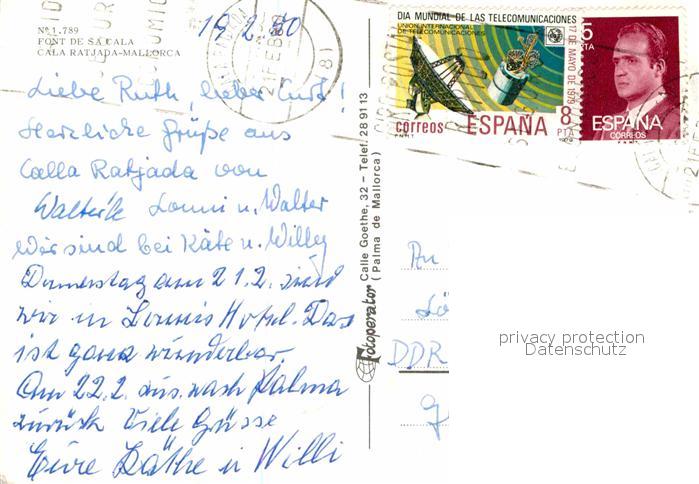 19.2.80
No 1.789
FONT DE SA CALA
CALA RATJADA-MALLORCA
Liebe Ruth, lieber Curt!
Herzliche Grüße aus
Calla Ratjada von
Lonni u. Walter
Wir sind bei Käte u. Willy
Donnerstag am 21.2. sind
wir in Lonnis Hotel. Das
ist ganz wunderbar.
Am 22.2. nach Palma
zurück Viele Grüsse
Eure Käthe u Willi
Fotoperator Calle Goethe, 32 - Telef. 28 91 13
(Palma de Mallorca)
DIA MUNDIAL DE LAS TELECOMUNICACIONES
UNION INTERNACIONAL
DE TELECOMUNICACIONES
17 DE MAYO DE 1979
correos ESPAÑA 8 PTA
5 PTA
ESPAÑA
CORREOS
An
DDR
privacy protection
Datenschutz